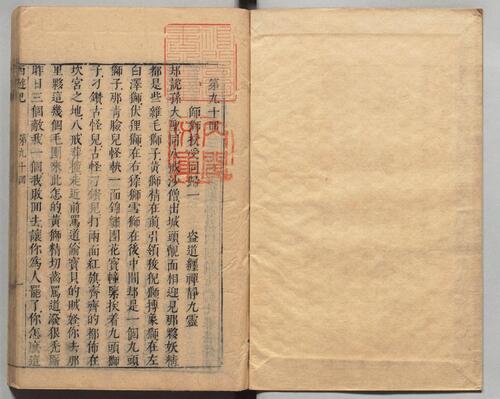 第九十囘
師獅授受同歸一　盜道纏禪靜九靈
却說孫大聖同八戒沙僧出城頭覿面相迎見那夥妖精
都是些雜毛獅子黃獅精在前引領狻猊獅摶象獅在左
白澤獅伏狸獅在右猱獅雪獅在後中間却是一個九頭
獅子那青臉兒怪執一面錦繡團花寶幢緊挨着九頭獅
子刁鑽古怪兒古怪刁鑽兒打兩面紅旗齊齊的都佈在
坎宮之地八戒莽撞走近前罵道偷寶貝的賊怪你去那
里夥這幾個毛團來此怎的黃獅精切齒罵道潑狠禿廝
昨日三個敵我一個我敗囘去讓你為人罷了你怎麼這
西遊記　第九十囘